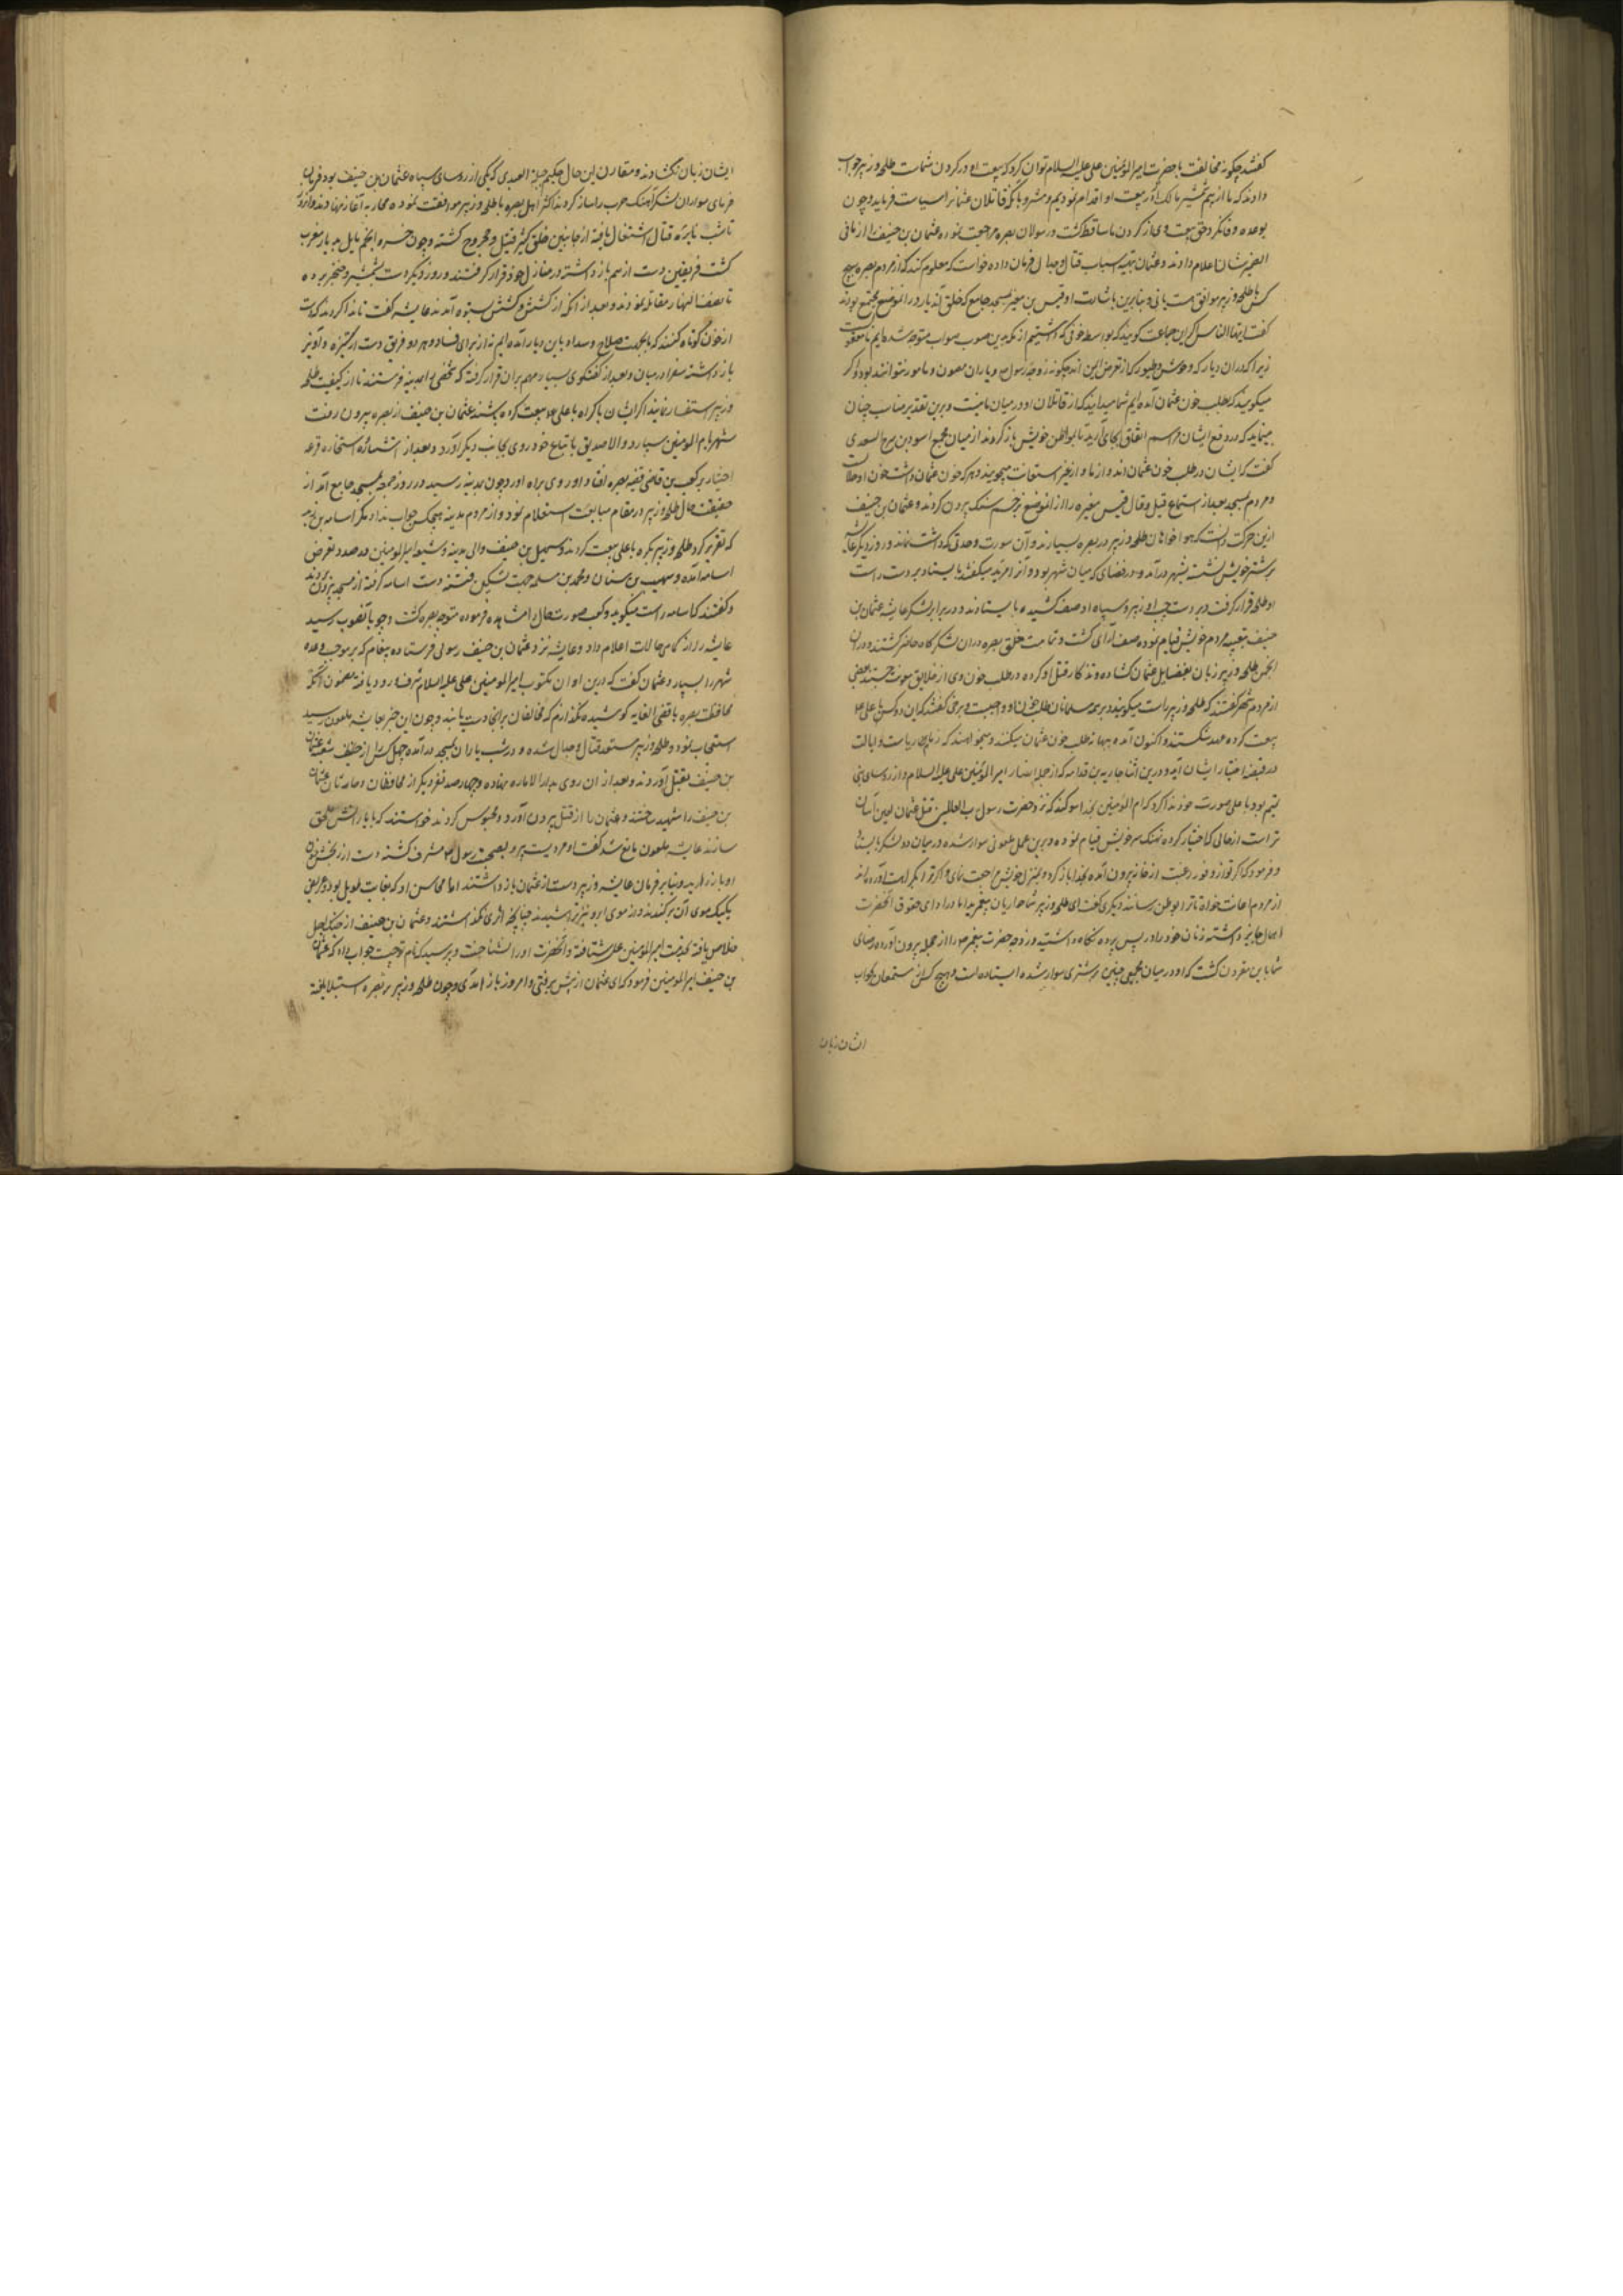 گفتند چگونه مخالفت با حضرت امیرالمؤمنین علی علیه السلام توان کرد که بیعت او در گردن شماست طلحه و زبیر جواب
دادند که ما از بیم شمشیر مالک اشتر ببیعت او اقدام نمودیم و مشروط بانکه قاتلان عثمانرا سیاست فرماید و چون
بوعده وفا نکرد حق بیعت وی از گردن ما ساقط گشت رسولان ببصره مراجعت نموده عثمان بن حنیف را از ما فی
الضمیر ایشان اعلام دادند و عثمان بتهیه اسباب قتال و جدال فرمان داده خواست که معلوم کند که از مردم بصره هیچ
کس با طلحه و زبیر موافق هست یا نی و بنابرین باشارت او قیس بن مغیره بمسجد جامع که خلق آن دیار در انموضع مجتمع بودند
گفت ایها الناس اگر این جماعت گویند که بواسطه خوفی که داشتیم از مکه بدین صوب صواب متوجه شده ایم نامعقولست
زیرا که در ان دیار که وحوش و طیور که از تعرض ایمن اند چگونه زوجه رسول و یاران مصون و مامور نتوانند بود و اگر
میگویند که بطلب خون عثمان آمده ایم شما میدانید که از قاتلان او در میان ما نیست و برین تقدیر مناسب چنان
مینماید که در دفع ایشان مراسم اتفاق بجای آرید تا بمواطن خویش باز گردند از میان مجمع اسود بن سریع السعدی
گفت که ایشان در طلب خون عثمان اند و از ما و از غیر استعانت میجویند و هر که خون عثمان داشت خون او حلالست
مردم مسجد بعد از استماع قیل و قال قیس مغیره را از انموضع بزخم سنگ بیرون کردند و عثمان بن حنیف
ازین حرکت دانست که هواخواهان طلحه و زبیر در بصره بسیارند و آن سورت و حدتی که داشت نماند و روز دیگر عایشه
بر شتر خویش نشسته بشهر درآمد و در فضای که میان شهر بود و آنرا مربد میگفتند بایستاد بر دست راست
او طلحه قرار گرفت و بر دست چپ او زبیر و سپاه او صف کشیده بایستادند و در برابر لشکر عایشه عثمان بن
حنیف بتعبیه مردم خویش قیام نموده صف آرای گشت و تمامت خلق بصره در ان لشکرگاه حاضر گشتند و در ان
انجمن طلحه و زبیر زبان بفضایل عثمان گشاده و تذکار قتل او کرده در طلب خون وی از خلایق معونت جستند بعضی
از مردم شهر گفتند که طلحه و زبیر راست میگویند و بر همه مسلمانان طلب خون او واجبست و برخی گفتند که این دو کس با علی
بیعت کرده عهد شکستند و اکنون آمده بهانه طلب خون عثمان میکنند و میخواهند که زمام ریاست و ایالت
در قبضه اختیار ایشان آید و درین اثنا جاریه بن قدامه که از جمله انصار امیرالمؤمنین علی علیه السلام و از روسای بنی
تمیم بود با علی صورت خود ندا کرد که ام المؤمنین بخدا سوگند که نزد حضرت رسول رب العالمین قتل عثمان لعین آسان
تر است از حالی که اختیار کرده بهتک ستر خویش قیام نموده و برین جمل ملعونی سوار شده در میان دو لشکر بایستاده
و فرمود که اگر بطوع و رغبت از خانه بیرون آمده بخدا باز گرد و بمنزل خویش مراجعت نمای و اگر ترا بکراهت آورده اند
از مردم اعانت خواه تا ترا بوطن رسانند دیگری گفت ای طلحه و زبیر شما حواریان پیغمبرید اما در ادای حقوق آنحضرت
اهمال جایز داشته زنان خود را در پس پرده نگاه داشتید و زوجه حضرت پیغمبر را از حجله بیرون آورده رضای
شما باین مقرون گشت که او در میان مجمعی چنین بر شتری سوار شده ایستاده است و هیچ کس از مستمعان بجواب
ایشان زبان
ایشان زبان نگشادند و مقارن این حال حکیم بن جبلة العبدی که یکی از روسای سپاه عثمان بن حنیف بود فرمان
فرمای سواران لشکر آهنگ حرب را ساز کردند اکثر اهل بصره با طلحه و زبیر موافقت نموده محاربه آغاز نهادند و انروز
تا شب نایره قتال اشتعال یافته از جانبین خلق کثیر قتیل و مجروح گشته و چون خسرو انجم مایل بدیار مغرب
گشت فریقین دست از هم باز داشته در منازل خود قرار گرفتند و روز دیگر دست بشمشیر و خنجر برده
تا نصف النهار مقاتله نمودند و بعد از آنکه از کشش و کوشش بستوه آمدند عایشه گفت تا ندا کردند که دست
از خون کوتاه کنند که ما بجهت صلاح و سداد باین دیار آمده ایم نه از برای فساد و هر دو فریق دست از ستیزه و آویز
باز داشته سفرا در میان و بعد از گفتگوی بسیار مهم بران قرار گرفت که شخصی را بمدینه فرستند تا از کیفیت طلحه
و زبیر استفسار نماید اگر ایشان باکراه با علی بیعت کرده باشند عثمان بن حنیف از بصره بیرون رفته
شهر بام المومنین سپارد و الا صدیق باتباع خود روی بجانب دیگر آورد و بعد از استشاره و استخاره قرعه
اختیار بر کعب بن قاضی فقیه بصره افتاد او روی براه آورد و چون بمدینه رسید در روز جمعه بمسجد جامع آمد از
حقیقت حال طلحه و زبیر در مقام مبایعت استعلام نمود و از مردم مدینه هیچکس جواب نداد مگر اسامه بن زید
که تقریر کرد طلحه و زبیر بکره با علی بیعت کردند و سهیل بن حنیف والی مدینه و شیعه امیرالمومنین در صدد تعرض
اسامه آمده و صهیب بن سنان و محمد بن مسلمه جهت تسکین فتنه دست اسامه گرفته از مسجد بیرون بردند
و گفتند که اسامه راست میگوید و کعب صورت حال را مشاهده فرموده متوجه بصره گشت و چون بآنصوب رسید
عایشه را از کماهی حالات اعلام داد و عایشه نزد عثمان بن حنیف رسولی فرستاده پیغام که بر موجب وعده
شهر را بسپار و عثمان گفت که درین اوان مکتوب امیرالمومنین علی علیه السلام شرف ورود یافته مضمون آنکه
محافظت بصره باقصی الغایه کوشیده نگذارم که مخالفان بر اینجا دست یابند و چون این خبر بعایشه ملعون رسید
استعجاب نمود و طلحه و زبیر مستعد قتال و جدال شده و در شب باران بمسجد درآمده چهل کس را از حفیف شعبه عثمان
بن حنیف بقتل آوردند و بعد از ان روی بدار الاماره نهاده و چهارصد نفر دیگر از محافظان و حارسان عثمان
بن حنیف را شهید ساختند و عثمان را از قتل بیرون آورد و محبوس کردند خواستند که بایارانش ملحق
سازند عایشه ملعون مانع شد گفت او مردیست پیر و بصحبت رسول مشرف گشته دست از رنجش خون
او باز دارید و بنابر فرمان عایشه و زبیر دست از عثمان باز داشتند اما محاسن او که بغایت طویل بود و عریض
یکیک موی آن برکندند و از موی ابرو نیز تراشیدند چنانچه اثری نگذاشتند و عثمان بن حنیف از چنگ اجل
خلاص یافته بخدمت امیرالمومنین علی شتافته و آنحضرت او را نشناخت و پرسید که نام تو چیست جواب داد که عثمان
بن حنیف امیرالمومنین فرمود که ای عثمان از پیش پیر رفتی و امروز باز آمدی و چون طلحه و زبیر بر بصره استیلا یافته